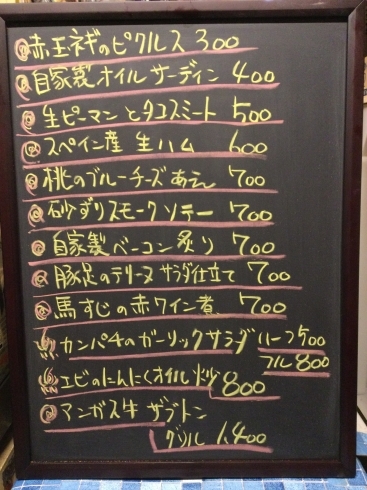 赤玉ネギのピクルス 300
自家製オイルサーディン 400
生ピーマンとタコスミート 500
スペイン産 生ハム 600
桃のブルーチーズあえ 700
砂ずりスモークソテー 700
自家製ベーコン炙り 700
豚足のテリーヌ サラダ仕立て 700
馬すじの赤ワイン煮 700
カンパチのガーリックサラダ ハーフ500
フル800
エビのにんにくオイル炒 800
アンガス牛 ザブトン
グリル 1,400